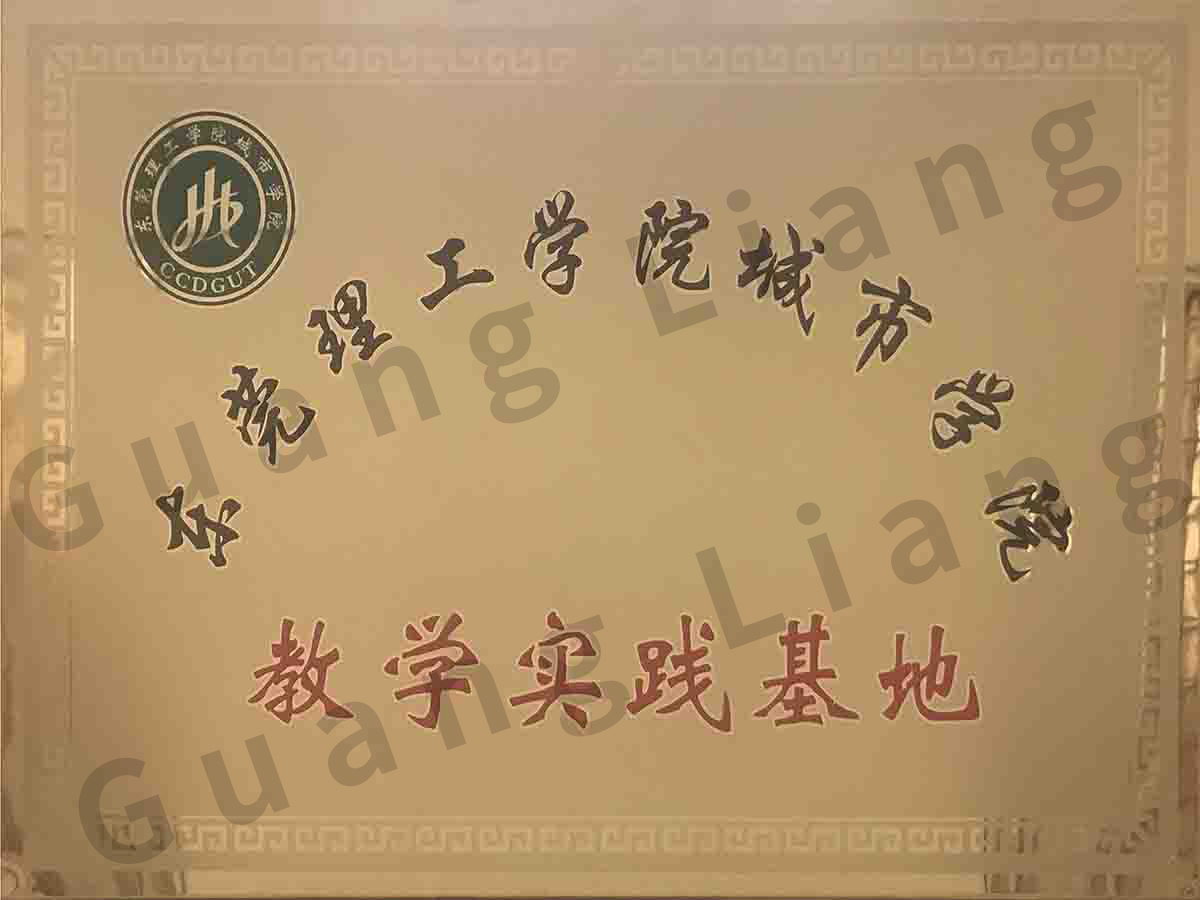 东莞理工学院城市学院
CCDGUT
东莞理工学院城市学院
教学实践基地
Guang Liang
Guang Liang